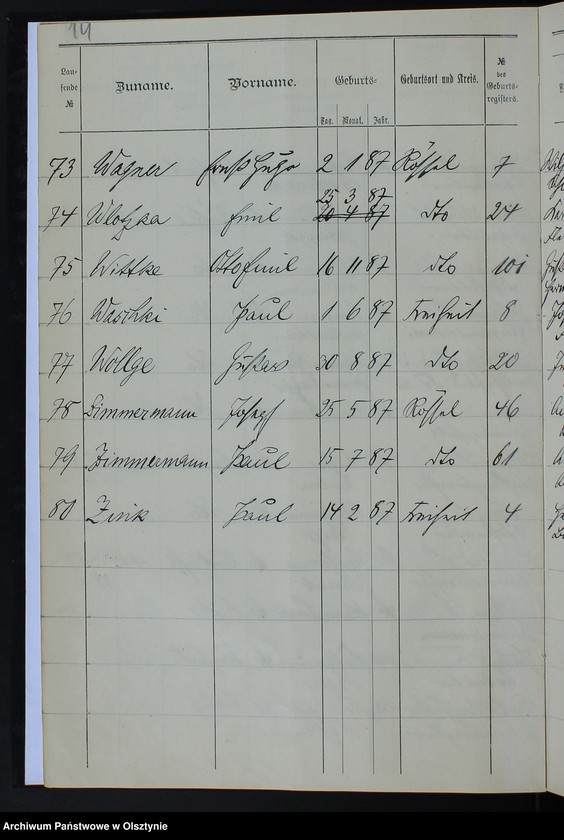 14
Lau-
fende
№
Zuname.
Vorname.
Geburts-
Tag. Monat. Jahr.
Geburtsort und Kreis.
№
des
Geburts-
registers.
73 Wagner Ernst Hugo 2 1 87 Rößel 7
25 3 87
74 Emil 20 4 87 dto 24
75 Wittke Otto Emil 16 11 87 dto 101
76 Waschki Paul 1 6 87 Freiheit 8
77 Wollge Gustav 30 8 87 dto 20
78 Zimmermann Josef 25 5 87 Rößel 46
79 Zimmermann Paul 15 7 87 dto 61
80 Zink Paul 14 2 87 Freiheit 4
Archiwum Państwowe w Olsztynie